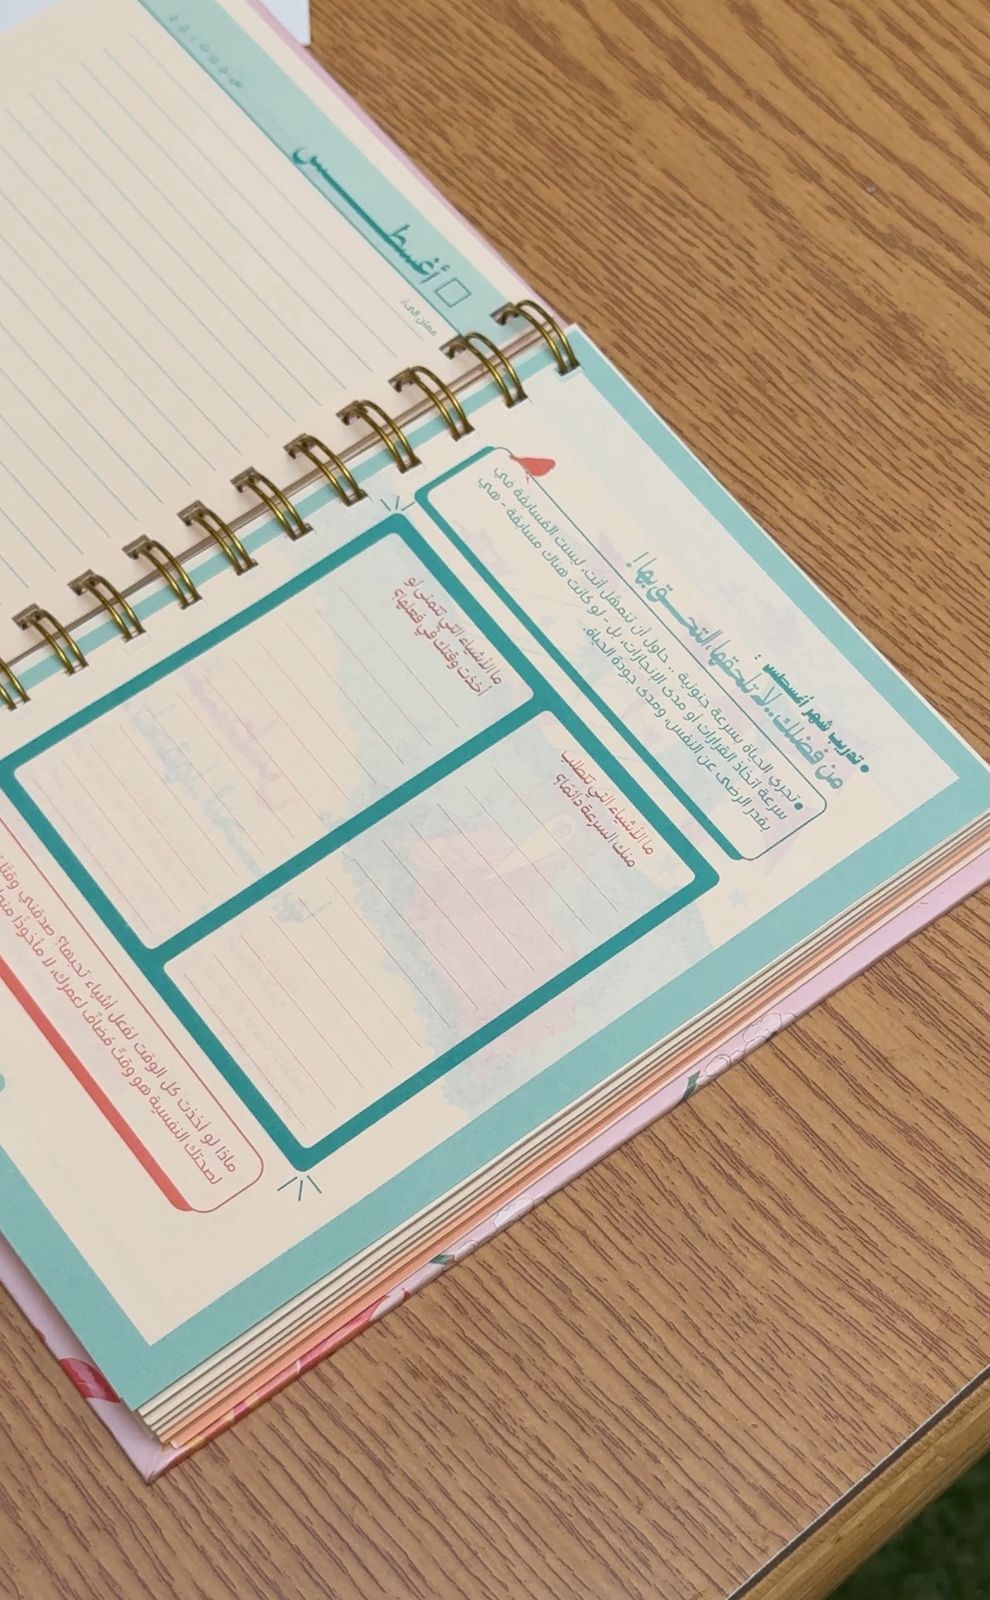 أغسطس
ممتن الى/
• تدريب شهر أغسطس :
من فضلك.. لا تلحقها، التحق بها!
• تجري الحياة بسرعة جنونية .. حاول أن تتمهّل أنت، ليست المُسابقة في
سرعة اتخاذ القرارات أو مدى الإنجازات، بل - لو كانت هناك مسابقة - هي
بقدر الرضى عن النفس، ومدى جودة الحياة.
ما الأشياء التي تتطلب
منك السرعة دائمًا؟
ما الأشياء التي تتمنى لو
أخذت وقتك في فعلها؟
ماذا لو أخذت كل الوقت لفعل أشياء تحبها؟ صدقني وقتًا
لصحتك النفسية هو وقتٌ مُضافٌ لعمرك، لا مأخوذًا منه